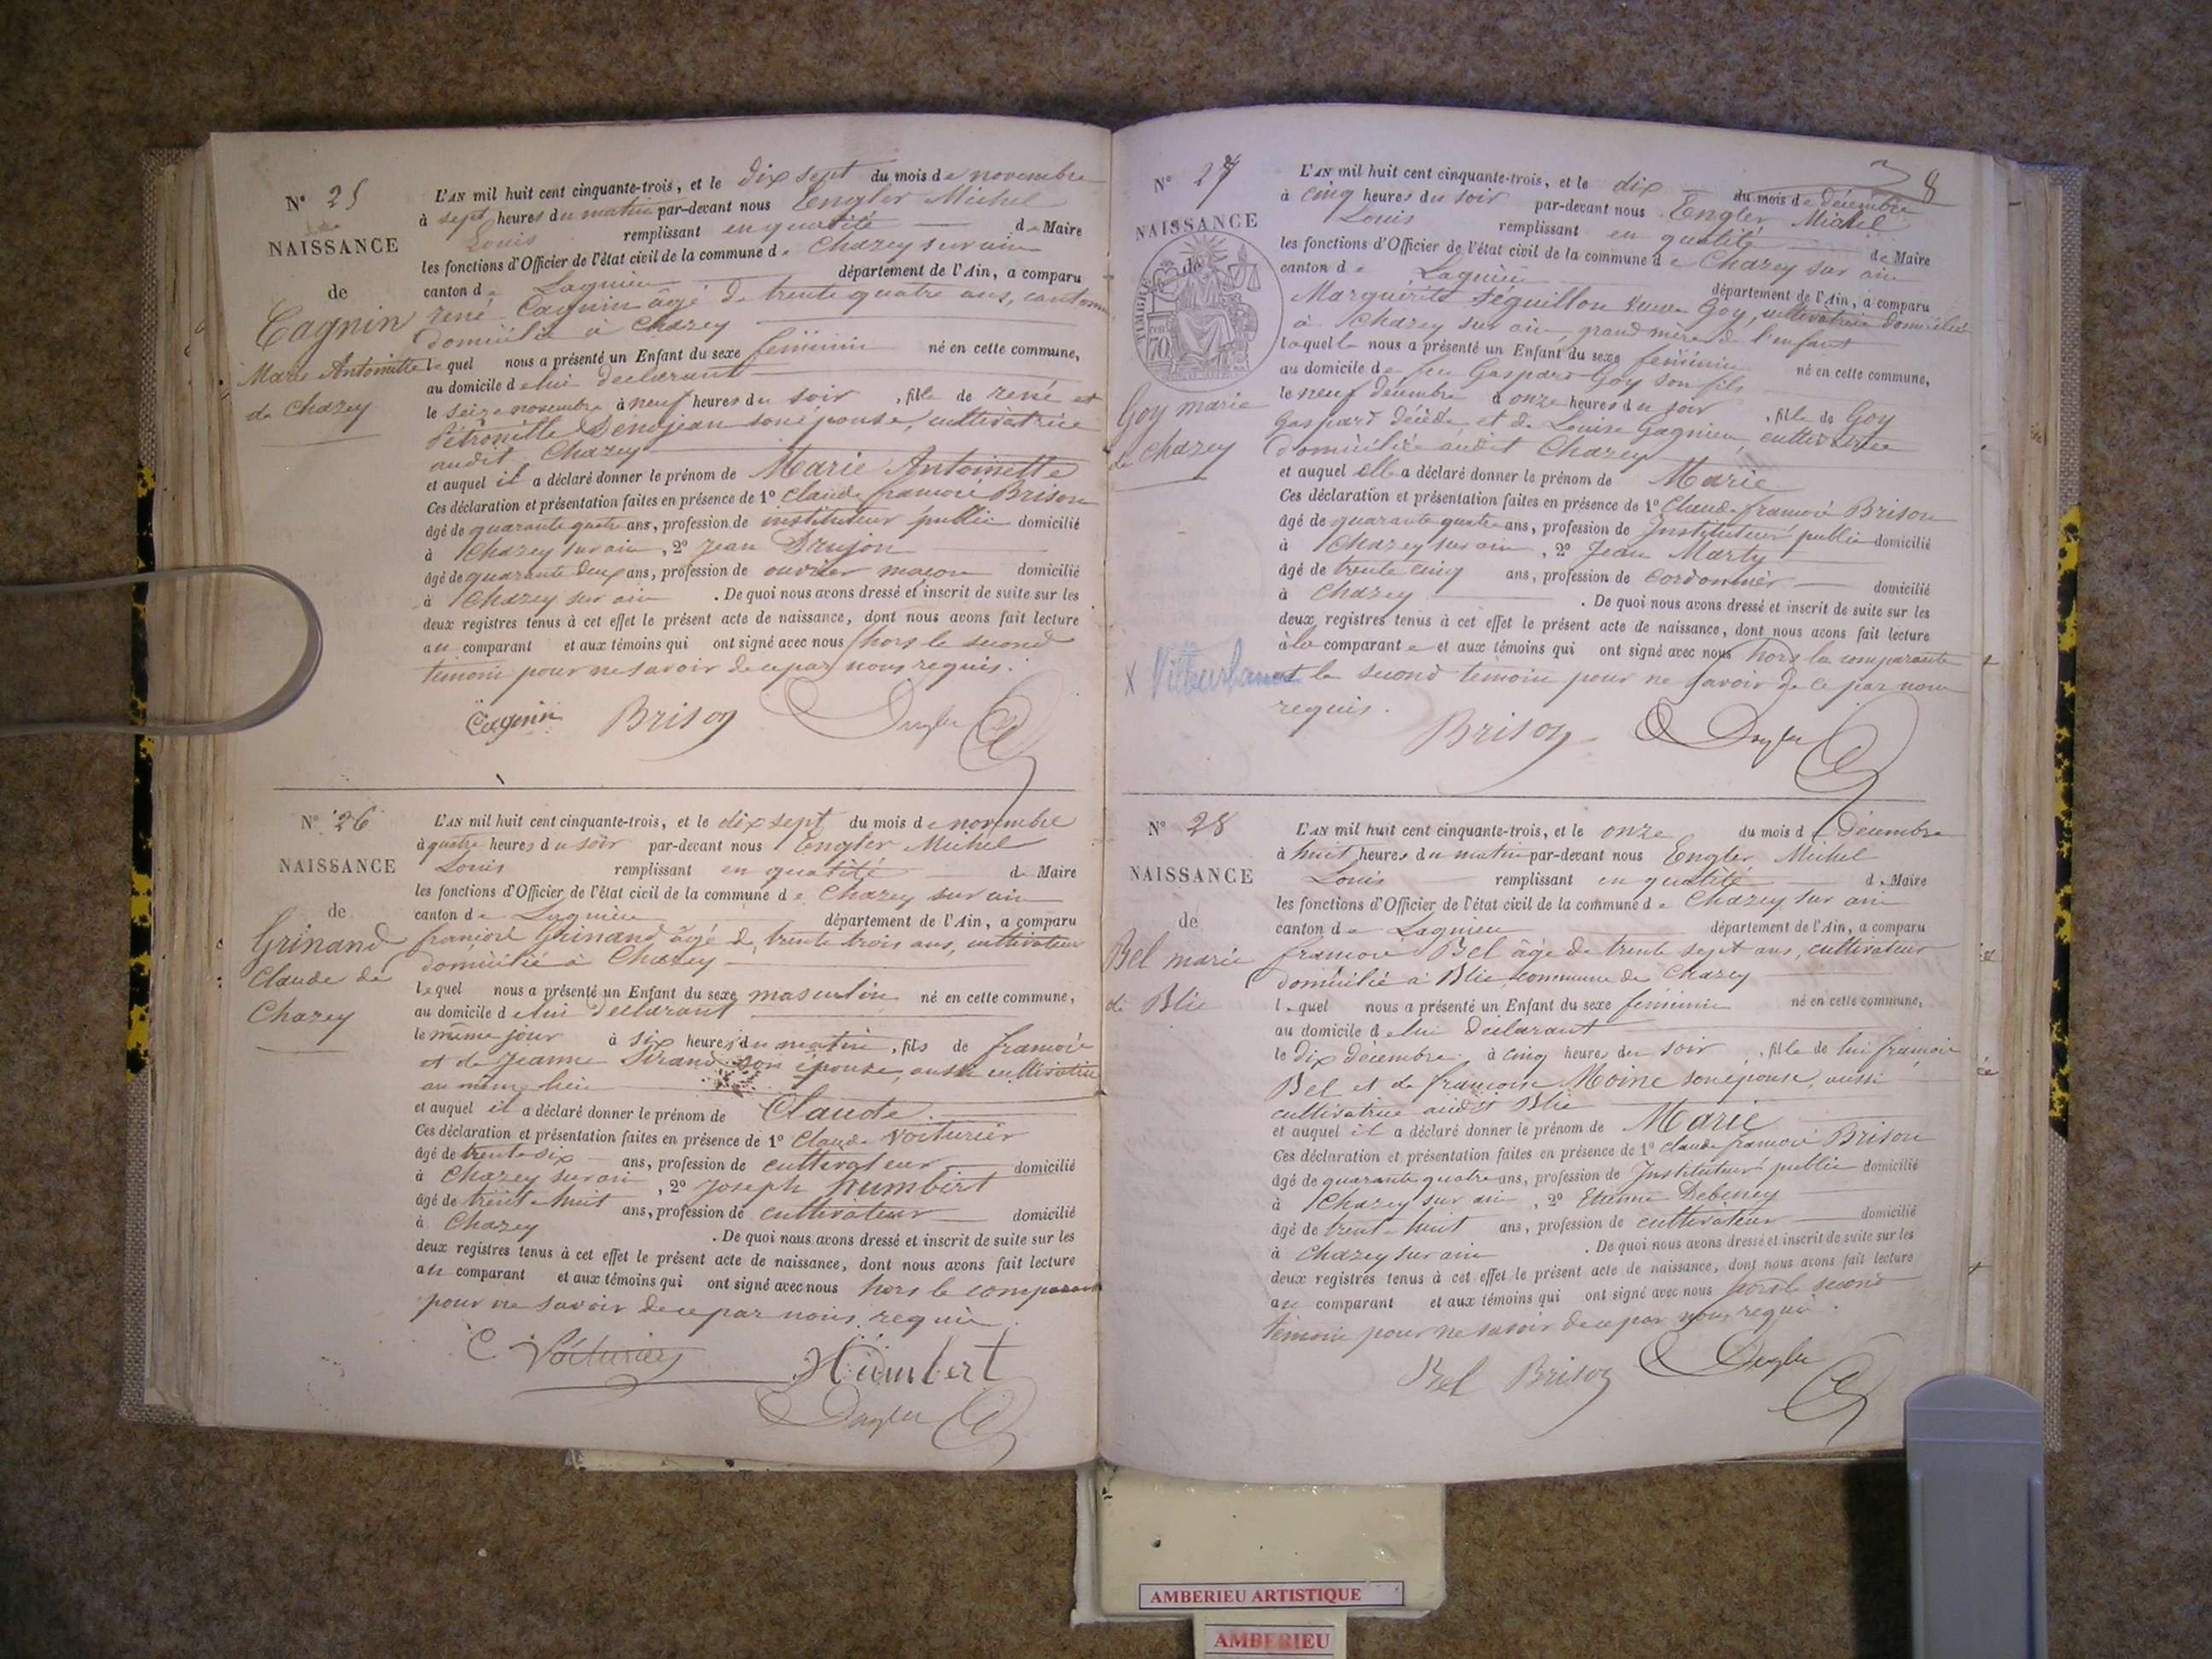 N° 25
NAISSANCE
de
Cagnin
Marie Antoinette
de Chazey
L'AN mil huit cent cinquante-trois, et le dix sept du mois de novembre
à sept heures du matin par-devant nous Engler Michel
Louis remplissant en qualité de Maire
les fonctions d'Officier de l'état civil de la commune de Chazey sur ain
canton de Lagnieu département de l'Ain, a comparu
rené Cagnin âgé de trente quatre ans,
domicilié à Chazey
lequel nous a présenté un Enfant du sexe féminin né en cette commune,
au domicile de lui déclarant
le seize novembre à neuf heures du soir, fille de rené et
Pétronille Denojean son épouse, cultivatrice
audit Chazey
et auquel il a déclaré donner le prénom de Marie Antoinette
Ces déclaration et présentation faites en présence de 1° Claude françois Brison
âgé de quarante quatre ans, profession de instituteur public domicilié
à Chazey sur ain, 2° Jean Drujon
âgé de quarante deux ans, profession de ouvrier maçon domicilié
à Chazey sur ain. De quoi nous avons dressé et inscrit de suite sur les
deux registres tenus à cet effet le présent acte de naissance, dont nous avons fait lecture
au comparant et aux témoins qui ont signé avec nous hors le second
témoin pour ne savoir de ce par nous requis.
Cagnin Brison Engler
N° 26
NAISSANCE
de
Grinand
Claude de
Chazey
L'AN mil huit cent cinquante-trois, et le dix sept du mois de novembre
à quatre heures du soir par-devant nous Engler Michel
Louis remplissant en qualité de Maire
les fonctions d'Officier de l'état civil de la commune de Chazey sur ain
canton de Lagnieu département de l'Ain, a comparu
françois Grinand âgé de trente trois ans, cultivateur
domicilié à Chazey
lequel nous a présenté un Enfant du sexe masculin né en cette commune,
au domicile de lui déclarant
le même jour à six heures du matin, fils de françois
et de Jeanne Sirand son épouse, aussi cultivatrice
au même lieu
et auquel il a déclaré donner le prénom de Claude.
Ces déclaration et présentation faites en présence de 1° Claude Voiturier
âgé de trente six ans, profession de cultivateur domicilié
à Chazey sur ain, 2° Joseph humbert
âgé de trente huit ans, profession de cultivateur domicilié
à Chazey. De quoi nous avons dressé et inscrit de suite sur les
deux registres tenus à cet effet le présent acte de naissance, dont nous avons fait lecture
au comparant et aux témoins qui ont signé avec nous hors le comparant
pour ne savoir de ce par nous requis.
C Voiturier Humbert
Engler
8
N° 27
NAISSANCE
de
TIMBRE
70
Goy marie
de Chazey
L'AN mil huit cent cinquante-trois, et le dix du mois de décembre
à cinq heures du soir par-devant nous Engler Michel
Louis remplissant en qualité de Maire
les fonctions d'Officier de l'état civil de la commune de Chazey sur ain
canton de Lagnieu département de l'Ain, a comparu
Marguérite Séguillon veuve Goy, cultivatrice domiciliée
à Chazey sur ain, grand mère de l'enfant
laquelle nous a présenté un Enfant du sexe féminin né en cette commune,
au domicile de feu Gaspard Goy son fils
le neuf décembre à onze heures du soir, fille de Goy
Gaspard décédé et de Louise Gagnieu, cultivatrice
domiciliée audit Chazey
et auquel elle a déclaré donner le prénom de Marie
Ces déclaration et présentation faites en présence de 1° Claude françois Brison
âgé de quarante quatre ans, profession de Instituteur public domicilié
à Chazey sur ain, 2° Jean Marty
âgé de trente cinq ans, profession de Cordonnier domicilié
à Chazey. De quoi nous avons dressé et inscrit de suite sur les
deux registres tenus à cet effet le présent acte de naissance, dont nous avons fait lecture
à la comparante et aux témoins qui ont signé avec nous hors la comparante
x Villeurbanne
et le second témoin pour ne savoir de ce par nous
requis.
Brison Engler
N° 28
NAISSANCE
de
Bel marie
de Blie
L'AN mil huit cent cinquante-trois, et le onze du mois de décembre
à huit heures du matin par-devant nous Engler Michel
Louis remplissant en qualité de Maire
les fonctions d'Officier de l'état civil de la commune de Chazey sur ain
canton de Lagnieu département de l'Ain, a comparu
françois Bel âgé de trente sept ans, cultivateur
domicilié à Blie, commune de Chazey
lequel nous a présenté un Enfant du sexe féminin né en cette commune,
au domicile de lui déclarant
le dix décembre à cinq heures du soir, fille de lui françois
Bel et de françoise Moine son épouse, aussi
cultivatrice audit Blie
et auquel il a déclaré donner le prénom de Marie
Ces déclaration et présentation faites en présence de 1° Claude françois Brison
âgé de quarante quatre ans, profession de Instituteur public domicilié
à Chazey sur ain, 2° Etienne Debeney
âgé de trente huit ans, profession de cultivateur domicilié
à Chazey sur ain. De quoi nous avons dressé et inscrit de suite sur les
deux registres tenus à cet effet le présent acte de naissance, dont nous avons fait lecture
au comparant et aux témoins qui ont signé avec nous hors le second
témoin pour ne savoir de ce par nous requis.
Bel Brison Engler
AMBERIEU ARTISTIQUE
AMBERIEU